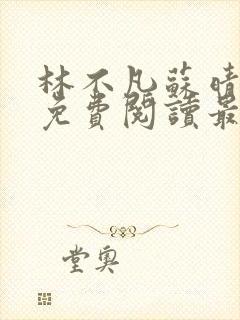 林不凡蘇晴
免費閱讀最
堂奧